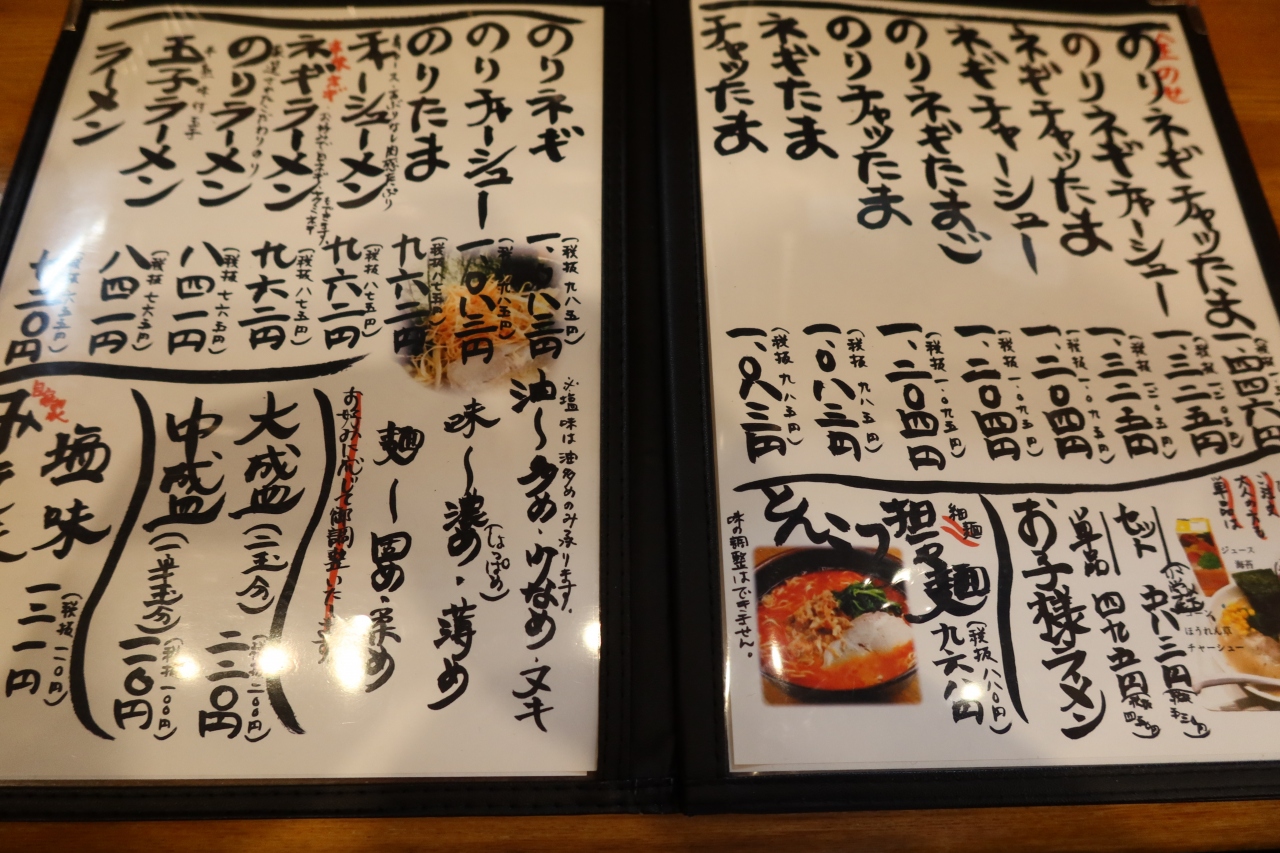 全のせ
のりネギチャッたま
一、四四六円
のりネギチャーシュー
一、三二五円
(税抜 一、二〇五円)
ネギチャッたま
一、三二五円
(税抜 一、二〇五円)
ネギチャーシュー
一、二〇四円
(税抜 一、〇九五円)
のりネギたまご
一、二〇四円
(税抜 一、〇九五円)
のりチャッたま
一、二〇四円
(税抜 一、〇九五円)
ネギたま
一、〇八三円
(税抜 九八五円)
チャッたま
一、〇八三円
(税抜 九八五円)
ジュース
海苔
ほうれん草
チャーシュー
セット
単品 四九五円
お子様ラーメン
細麺
とんこつ担々麺
九六八円
(税抜 八八〇円)
味の調整はできません。
のりネギ
一、〇八三円
(税抜 九八五円)
のりチャーシュー
一、〇八三円
のりたま
九六二円
(税抜 八七五円)
チャーシューメン
九六二円
(税抜 八七五円)
ネギラーメン
九六二円
(税抜 八七五円)
のりラーメン
八四一円
(税抜 七六五円)
玉子ラーメン
八四一円
(税抜 七六五円)
味付玉子
ラーメン
七二〇円
(税抜 六五五円)
※塩味は油多めのみ承ります。
油〜多め・少なめ・ヌキ
味〜濃め(しょっぱめ)・薄め
麺〜固め・柔め
お好みに応じて御調整いたします
大盛(二玉分)
二二〇円
(税抜 二〇〇円)
中盛(一半玉分)
一一〇円
(税抜 一〇〇円)
塩味
一二一円
(税抜 一一〇円)